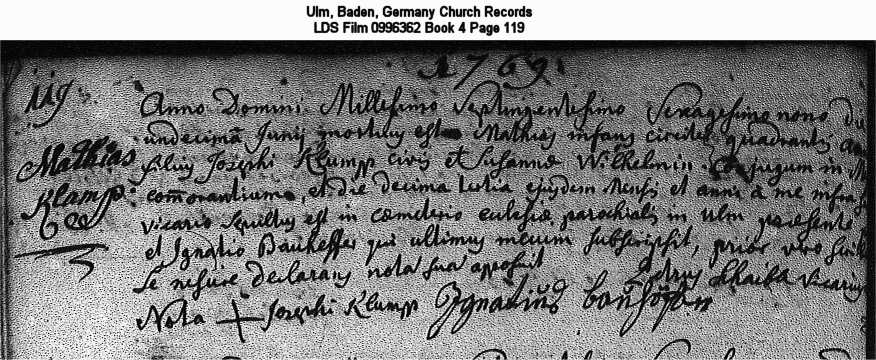 Ulm, Baden, Germany Church Records
LDS Film 0996362 Book 4 Page 119
1769.
119
Mathias
Klump
Anno Domini Millesimo Septingentesimo Sexagesimo nono die
undecima Junij mortuus est Mathias infans circiter quadrantis
filius Josephi Klumpp civis et Susanna Wilhelmin Conjugum in
commorantium, et die decima tertia ejusdem mensis et anni a me infra
vicario sepultus est in cœmeterio ecclesiæ parochialis in ulm præsente
et Ignatio qui ultimus mecum subscripsit, prior vero
se nescire declarans nota sua apposuit
vicarius
Nota + Josephi Klumpp Ignatius